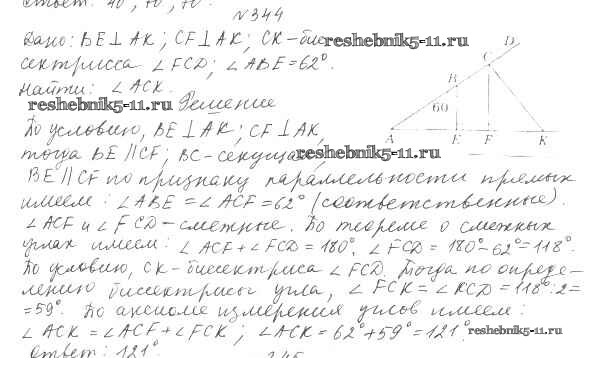 Ответ: 40°, 70°, 70°.
№344
Дано: BE⊥AK; CF⊥AK; CK-бис-
reshebnik5-11.ru
сектрисса ∠FCD; ∠ABE=62°.
Найти: ∠ACK.
reshebnik5-11.ru Решение
По условию, BE⊥AK; CF⊥AK,
тогда BE∥CF; BC-секущая.
reshebnik5-11.ru
A B C D E F K 60
BE∥CF по признаку параллельности прямых
имеем: ∠ABE=∠ACF=62° (соответственные).
∠ACF и ∠FCD-смежные. По теореме о смежных
углах имеем: ∠ACF+∠FCD=180°. ∠FCD=180°-62°=118°.
По условию, CK-биссектриса ∠FCD. Тогда по опреде-
лению биссектрисы угла, ∠FCK=∠KCD=118°:2=
=59°. По аксиоме измерения углов имеем:
∠ACK=∠ACF+∠FCK; ∠ACK=62°+59°=121°.
reshebnik5-11.ru
Ответ: 121°.
345